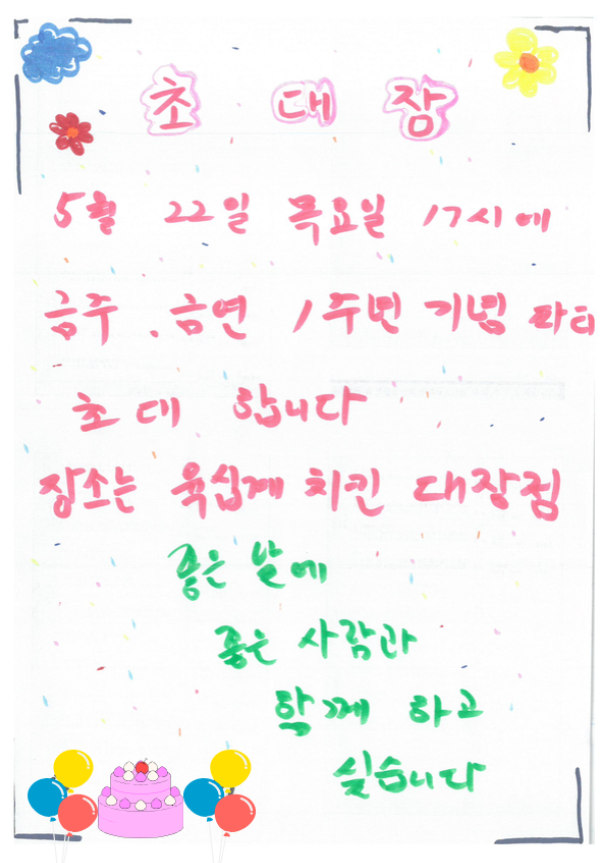 초 대 장
5월 22일 목요일 17시에
금주 . 금연 1주년 기념 파티
초대 합니다
장소는 육십계 치킨 대장점
좋은 날에
좋은 사람과
함께 하고
싶습니다